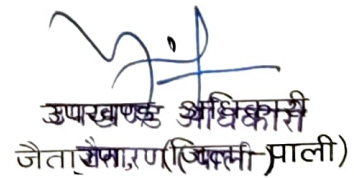 उपखण्ड अधिकारी
जैतारण (जिला-पाली)